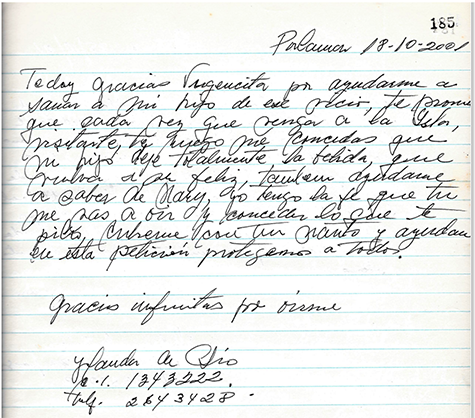 185
Porlamar 18-10-2001
Te doy gracias Virgencita por ayudarme a
sanar a mi hijo de ese vicio, te prome
que cada vez que venga a la Isla,
visitarte, te ruego me concedas que
mi hijo deje totalmente la bebida, que
vuelva a ser feliz, tambien ayudame
a saber de Mary, yo tengo la fe que tu
me vas a oir y conceder lo que te
pido, cubreme con tu manto y ayudam
en esta petición protegenos a todos.
Gracias infinitas por oirme
Yolanda de
C.I. 1343222.
Telf. 2643428.